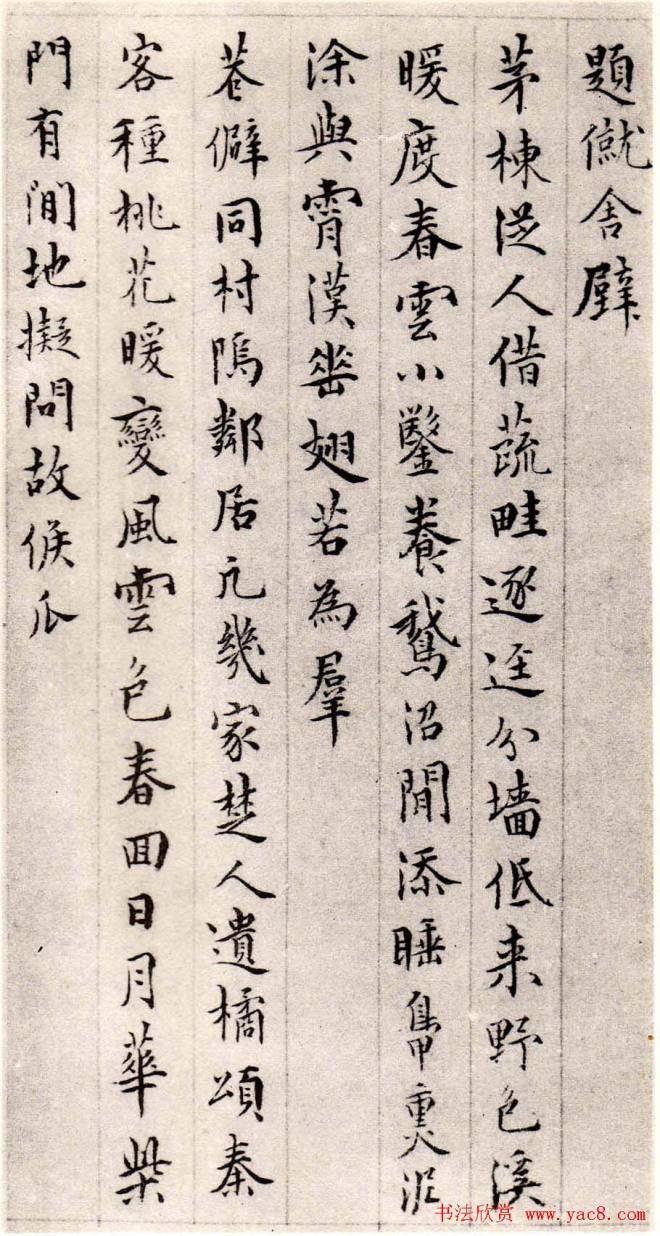 題僦舍壁
茅棟従人借蔬畦逐逕分墻低来野色溪
暖度春雲小鑿養鵝沼閒添睡鴨熏泥
涂與霄漢垂翅若為羣
巷僻同村隖鄰居凢幾家楚人遺橘頌秦
客種桃花暖變風雲色春囬日月華柴
門有閒地擬問故侯瓜
书法欣赏 www.yac8.com